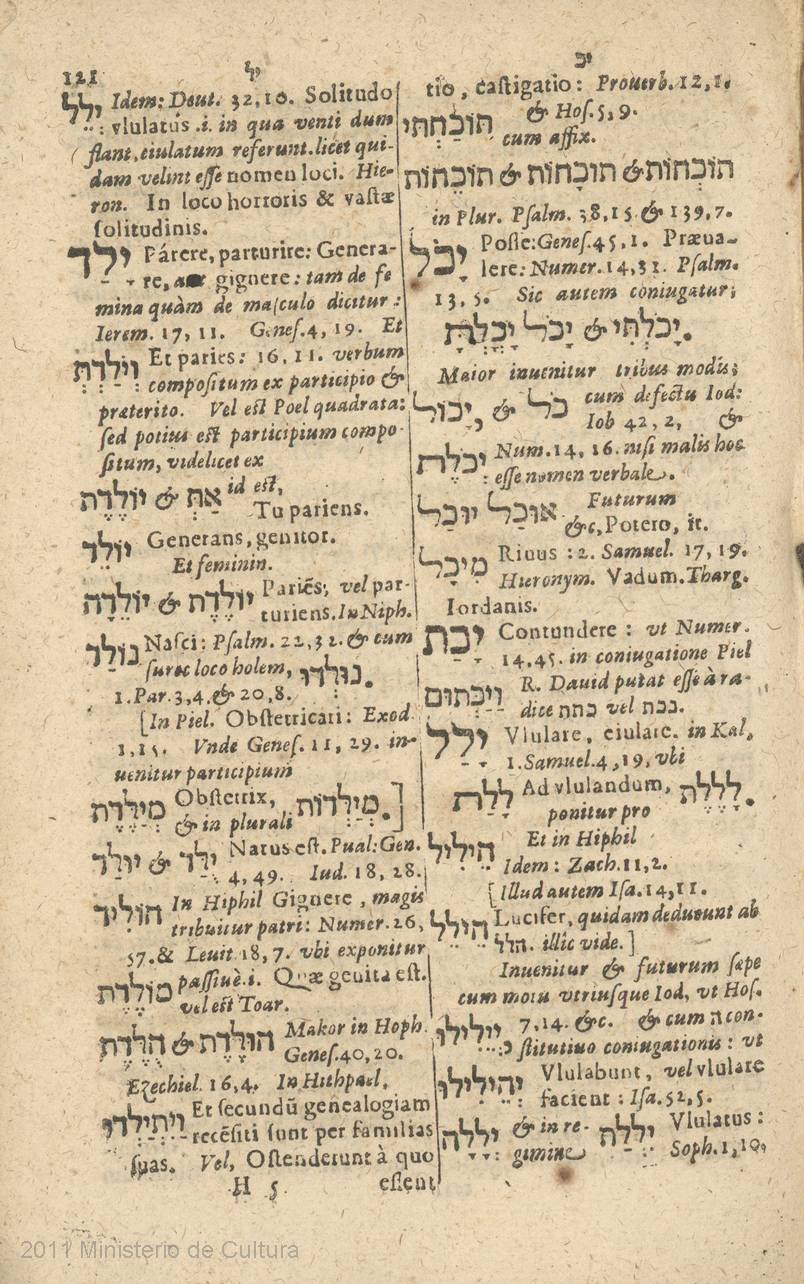 121 יל יכ
tio, castigatio: Prouerb. 12,1.
תּוֹכַחְתִּי & Hos. 5,9.
cum affix.
תּוֹכְחוֹת & תּוֹכָחוֹת & תּוֹכֵחוֹת
in Plur. Psalm. 38,15 & 139,7.
יָכֹל Posse: Genes. 45,1. Præua-
lere: Numer. 14,31. Psalm.
13,5. Sic autem coniugatur;
יָכֹלְתִּי & יָכֹל יָכֹלְתָּ.
Maior inuenitur tribus modis;
יָכוֹל, & כֹל cum defectu Iod:
Iob 42,2, &
יְכֹלֶת Num. 14,16. nisi malis hoc
esse nomen verbale.
אוּכַל יוּכַל Futurum
&c, Potero, it.
מִיכַל Riuus: 2. Samuel. 17,19.
Hieronym. Vadum. Tharg.
Iordanis.
יכת Contundere: vt Numer.
14.45. in coniugatione Piel
וַיַּכְּתוּם R. Dauid putat esse à ra-
dice כתת vel נכת.
ילל Vlulare, eiulare. in Kal,
1. Samuel. 4,19, vbi
לָלַת Ad vlulandum, לְלֶלֶת.
ponitur pro
הֵילִיל Et in Hiphil
Idem: Zach. 11,2.
[Illud autem Isa. 14,11.
הֵילֵל Lucifer, quidam deducunt ab
הלל. illic vide.]
Inuenitur & futurum sæpe
cum motu vtriusque Iod, vt Hos.
יְיֵלִילוּ 7.14. &c. & cum ה con-
stitutiuo coniugationis: vt
יְהֵילִילוּ Vlulabunt, vel vlulare
facient: Isa. 52,5.
יְלָלָה & in re- יִלְלַת Vlulatus:
gimine Soph. 1,10,
יְלֵל Idem: Deut. 32,10. Solitudo
vlulatus .i. in qua venti dum
flant, eiulatum referunt. licet qui-
dam velint esse nomen loci. Hie-
ron. In loco horroris & vastæ
solitudinis.
ילד Párere, parturire: Genera-
re, gignere: tam de fe
mina quàm de masculo dicitur:
Ierem. 17,11. Genes. 4,19. Et
וְיֹלַדְתְּ Et paries: 16,11. verbum
compositum ex participio &
præterito. Vel est Poel quadrata:
sed potius est participium compo-
situm, videlicet ex
אַתְּ & יוֹלֶדֶת id est,
Tu pariens.
יוֹלֵד Generans, genitor.
Et feminin.
יוֹלֶדֶת & יוֹלֵדָה Pariẽs, vel par-
turiens. In Niph.
נוֹלַד Nasci: Psalm. 22,32. & cum
surec loco holem, נוּלְּדוּ.
1. Par. 3,4. & 20,8.
[In Piel. Obstetricari: Exod
1,15. Vnde Genes. 11,29. in-
uenitur participium
מְיַלֶּדֶת Obstetrix, מְיַלְּדוֹת.]
& in plurali
יֻלַּד & יוּלַד Natus est. Pual: Gen.
4,49. Iud. 18,28.
הוֹלִיד In Hiphil Gignere, magis
tribuitur patri: Numer. 26,
57. & Leuit. 18,7. vbi exponitur
מוֹלֶדֶת passiuè .i. Quæ genita est.
vel est Toar.
הוּלֶּדֶת & הֻלֶּדֶת Makor in Hoph.
Genes. 40,20.
Ezechiel. 16,4. In Hithpael,
וַיִּתְיַלְדוּ Et secundũ genealogiam
recẽsiti sunt per familias
suas. Vel, Ostenderunt à quo
H 5 essent
2011 Ministerio de Cultura